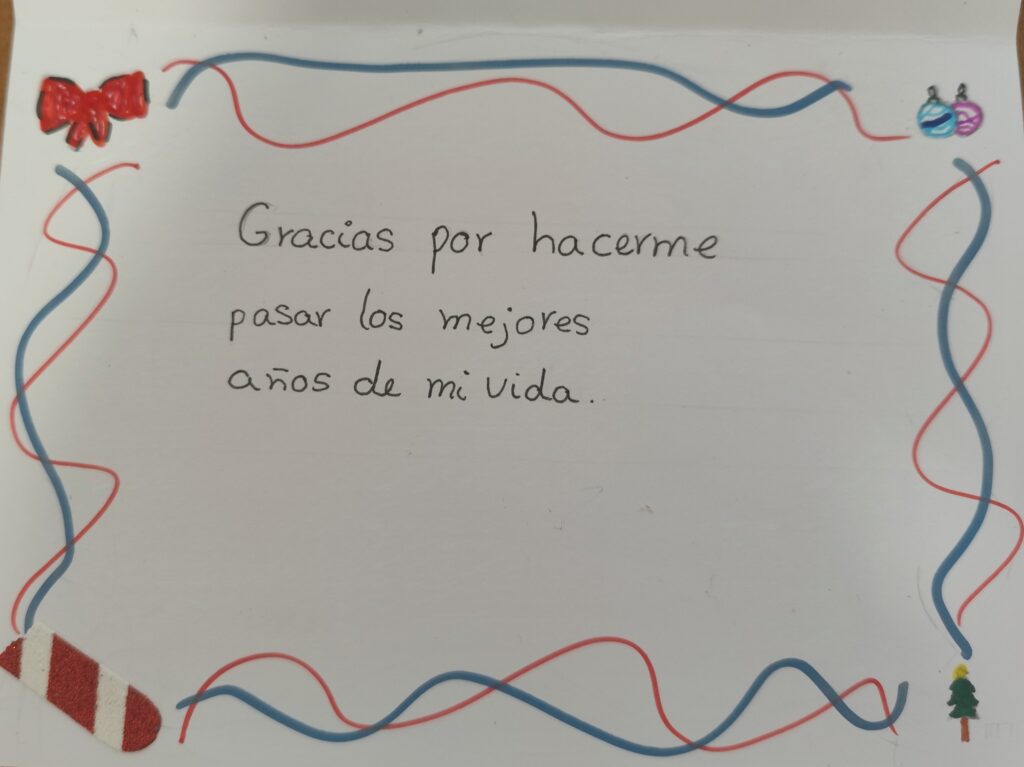 Gracias por hacerme
pasar los mejores
años de mi vida.